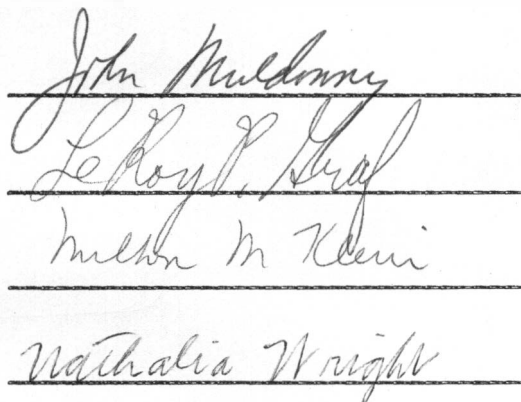 John Muldowny
LeRoy P. Graf
Milton M Klein
Nathalia Wright